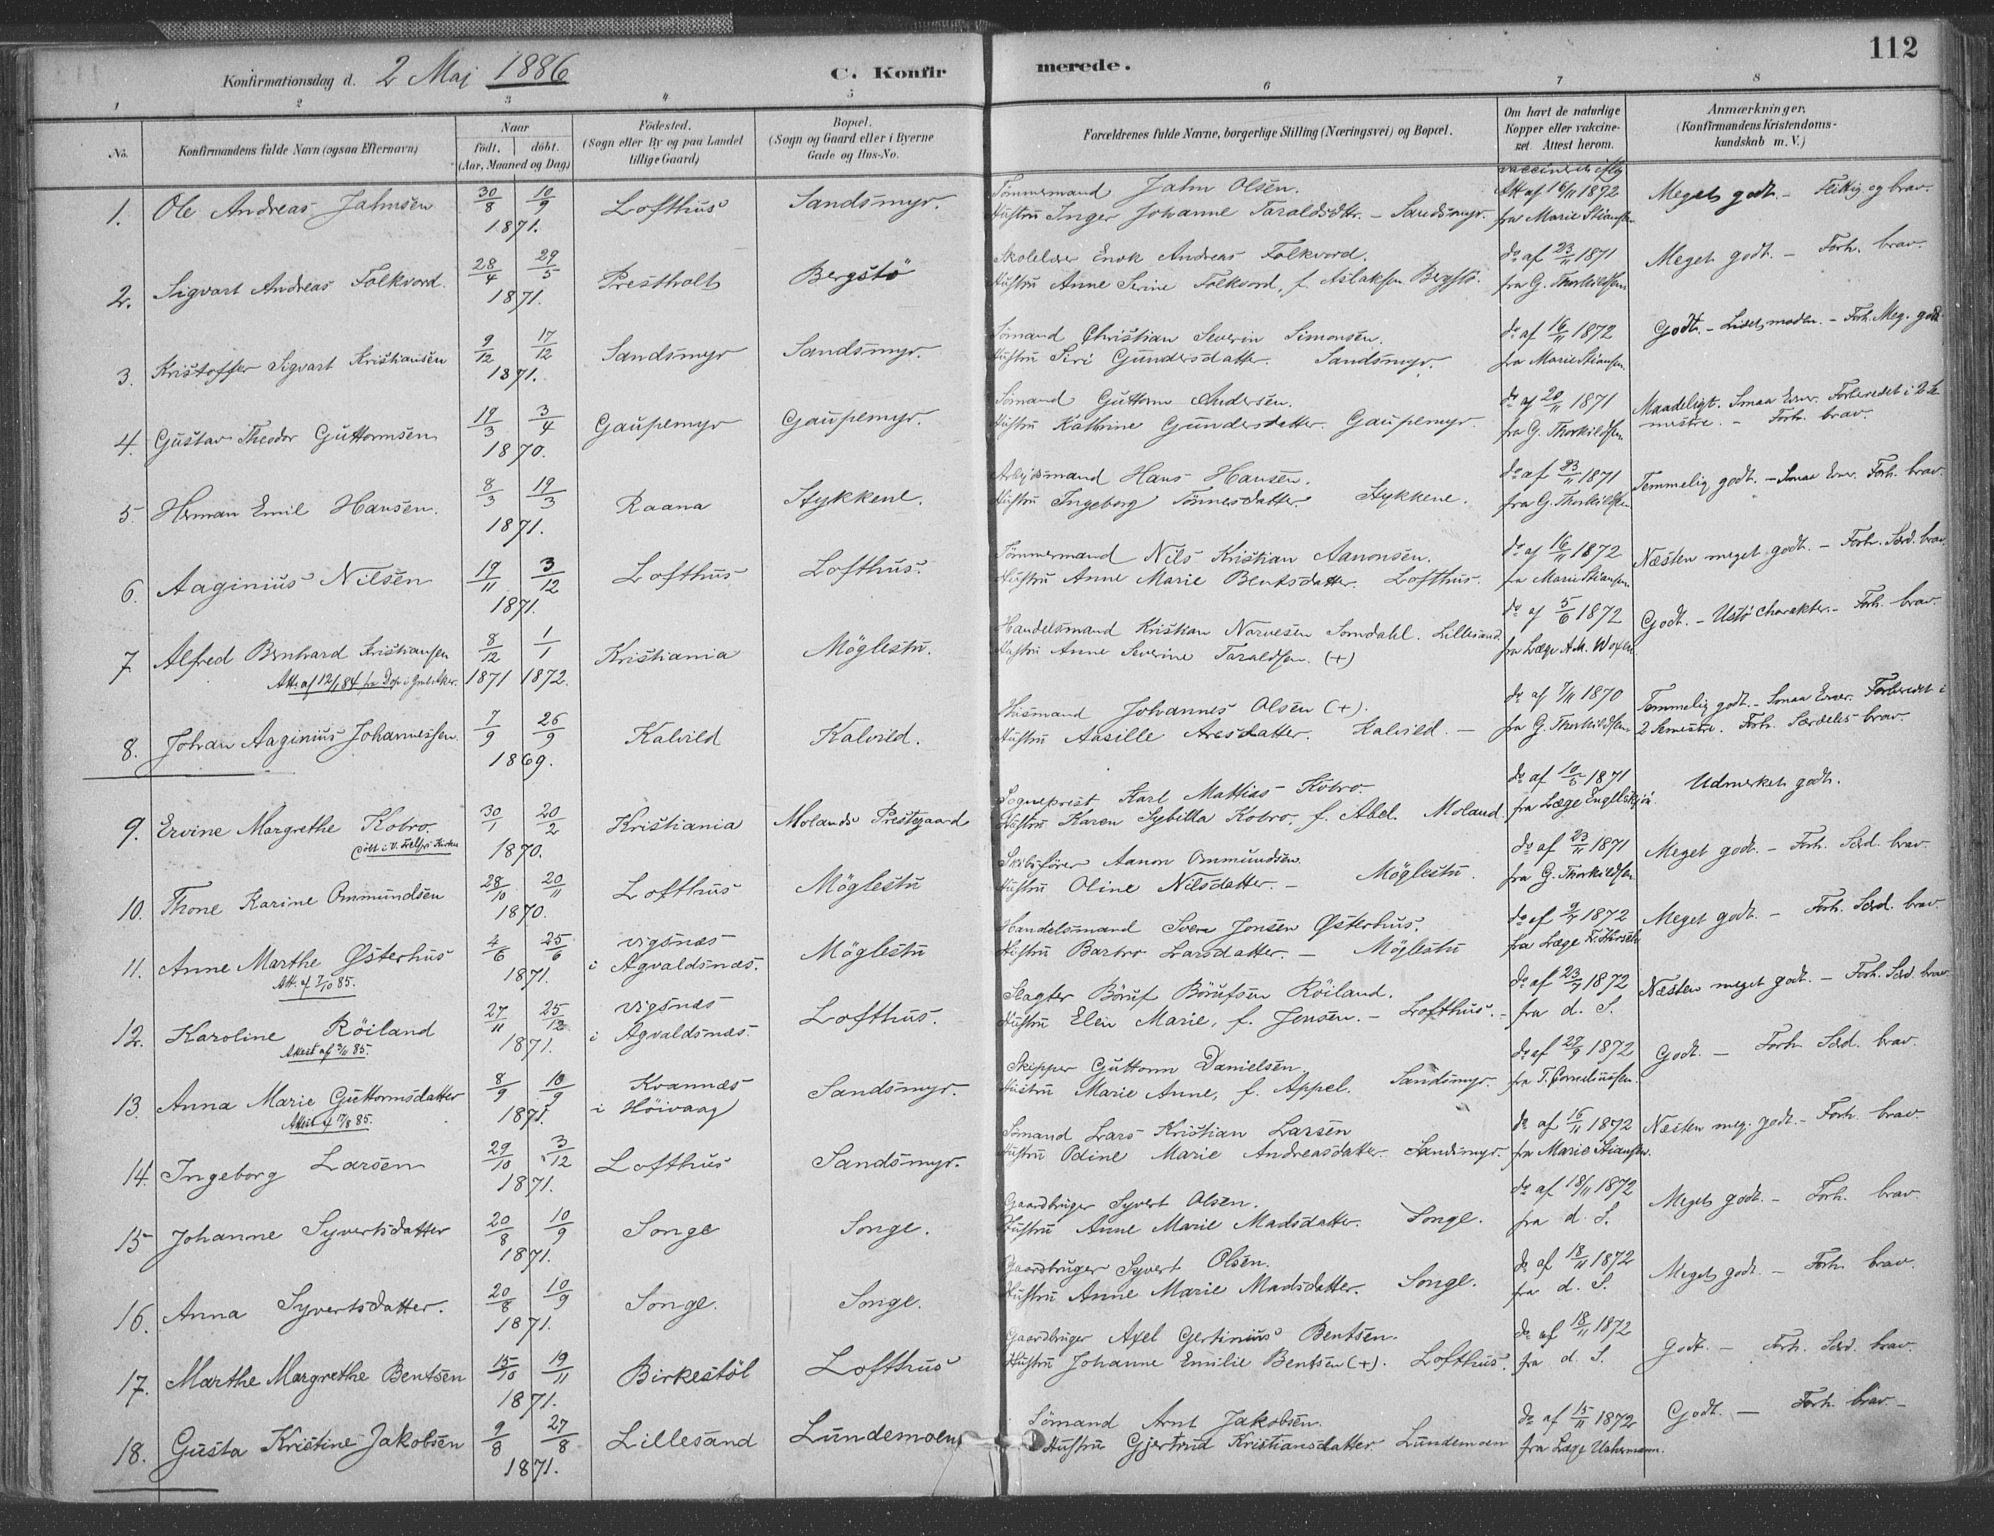 112
Konfirmationsdag d. 2 Mai 1886
C. Konfirmerede.
1 2 3 4 5 6 7 8
No. Konfirmandens fulde Navn (ogsaa Efternavn) Naar født, døbt. (Aar, Maaned og Dag) Fødested. (Sogn eller By og paa Landet tillige Gaard) Bopæl. (Sogn og Gaard eller i Byerne Gade og Hus-No. Forældrenes fulde Navne, borgerlige Stilling (Næringsvei) og Bopæl. Om havt de naturlige Kopper eller vaccineret. Attest herom. Anmærkninger. (Konfirmandens Kristendomskundskab m. V.)
1. Ole Andreas Jahnsen 30/8 10/9 1871. Lofthus Sandsmyr. Tömmermand Jahn Olsen.
Hustru Inger Johanne Taraldsdtr. – Sandsmyr. Att af 16/11 1872 fra Marie Stiansen Meget godt. – Flittig og brav.
2. Sigvart Andreas Folkvord. 28/4 29/5 1871. Prestholt Bergstö Skolelærer Enok Andreas Folkvord.
Hustru Anne Serine Folkvord, f. Aslaksen Bergstö. do af 23/11 1871 fra G. Thorkildsen Meget godt. – Forh. brav.
3. Kristoffer Sigvart Kristiansen 9/12 17/12 1871. Sandsmyr Sandsmyr. Sömand Christian Severin Simonsen.
Hustru Siri Gundersdatter. Sandsmyr. do af 16/11 1872 fra Marie Stiansen Godt. – – Forh. Meg. godt
4. Gustav Theodor Guttormsen 19/3 3/4 1870. Gaupemyr Gaupemyr. Sömand Guttorm Andersen.
Hustru Kathrine Gundersdatter. Gaupemyr. do af 20/11 1871 fra G. Thorkildsen Maadeligt. Smaa Evner. Forberedet i 2 Semestre. – Forh. brav.
5. Herman Emil Hansen. 8/3 19/3 1871. Raana Stykkene. Arbeidsmand Hans Hansen.
Hustru Ingeborg Tönnesdatter. Stykkene. do af 23/11 1871 fra G. Thorkildsen Temmelig godt. – Smaa Evner. Forh. brav.
6. Aaginius Nilsen 19/11 3/12 1871. Lofthus Lofthus. Tömmermand Nils Kristian Aanonsen.
Hustru Anne Marie Bentsdatter. Lofthus. do af 16/11 1872 fra Marie Stiansen Næsten meget godt. – Forh. Særd. brav
7. Alfred Bernhard Kristiansen 8/12 1/1 1871 1872. Kristiania Möglestu. Handelsmand Kristian Narvesen Somdahl. Lillesand.
Att. af 12/1 84 fra
Hustru Anne Severine Taraldsen. (+) do af 5/6 1872 fra Læge A.M. Godt. – Ustö Charakter. – Forh. brav.
8. Johan Aaginius Johannessen. 7/9 26/9 1869. Kalvild Kalvild. Husmand Johannes Olsen (+).
Hustru Aasille Aresdatter. Kalvild. – do af 7/11 1870 fra G. Thorkildsen Temmelig godt. – Smaa Evner. Forberedet i 2 Semestre. Forh. Særdeles brav.
9. Ervine Margrethe Kobro. 30/1 20/2 1870. Kristiania Molands Prestegaard Sogneprest Karl Mathias Kobro.
döbt i V. Frelsers Kirken
Hustru Karen Sybilla Kobro, f. Abel. Moland. do af 10/5 1871 fra Læge Udmerket godt.
10. Thone Karine Ommundsen 28/10 20/11 1870. Lofthus Möglestu Skibsförer Aanon Ommundsen
Hustru Oline Nilsdatter. – Möglestu. do af 23/11 1871 fra G. Thorkildsen Meget godt. – Forh. Særd. brav.
11. Anne Marthe Østerhus 4/6 25/6 1871. Vigsnæs i Agvaldsnæs. Möglestu Handelsmand Svere Jonsen Østerhus.
Att. af 7/10 85.
Hustru Barbro Larsdatter. – Möglestu do af 9/7 1872 fra Læge Meget godt. – Forh. Særd. brav.
12. Karoline Röiland 27/11 25/12 1871. Vigsnæs i Agvaldsnæs Lofthus. Slagter Böruf Börufsen Röiland.
Attest af 3/11 85.
Hustru Elen Marie, f. Jensen. – Lofthus. – do af 23/7 1872 fra d. S. Næsten meget godt. – Forh. Særd. brav
13. Anna Marie Guttormsdatter 8/9 10/9 1871. Kvannæs i Höivaag Sandsmyr. Skipper Guttorm Danielsen.
Attest af 17/8 85.
Hustru Marie Anne, f. Appel. Sandsmyr. do af 27/9 1872 fra T. Corneliussen. Godt. – Forh. Særd. brav.
14. Ingeborg Larsen 29/10 3/12 1871. Lofthus Sandsmyr. Sömand Lars Kristian Larsen
Hustru Odine Marie Andreasdatter. Sandsmyr. do af 16/11 1872 fra Marie Stiansen. Næsten meg. godt. – Forh. brav
15 Johanne Syvertsdatter 20/8 10/9 1871. Songe Songe. Gaardbruger Syvert Olsen.
Hustru Anne Marie Madsdatter. Songe. do af 18/11 1872 fra d. S. Meget godt. – Forh. brav.
16. Anna Syvertsdatter. 20/8 10/9 1871. Songe. Songe. Gaardbruger Syvert Olsen.
Hustru Anne Marie Madsdatter. Songe. do af 18/11 1872 fra d. S. Meget godt. – Forh. brav.
17. Marthe Margrethe Bentsen 15/10 19/11 1871. Birkestöl Lofthus Gaardbruger Axel Gertinius Bentsen.
Hustru Johanne Emilie Bentsen (+). Lofthus. do af 18/11 1872 fra d. S. Godt. – Forh. Særd. brav.
18. Gusta Kristine Jakobsen 9/8 27/8 1871. Lillesand Lundemoen Sömand Arnt Jakobsen.
Hustru Gjertrud Kristiansdatter Lundemoen do af 15/11 1872 fra Læge Godt. – Forh. brav –